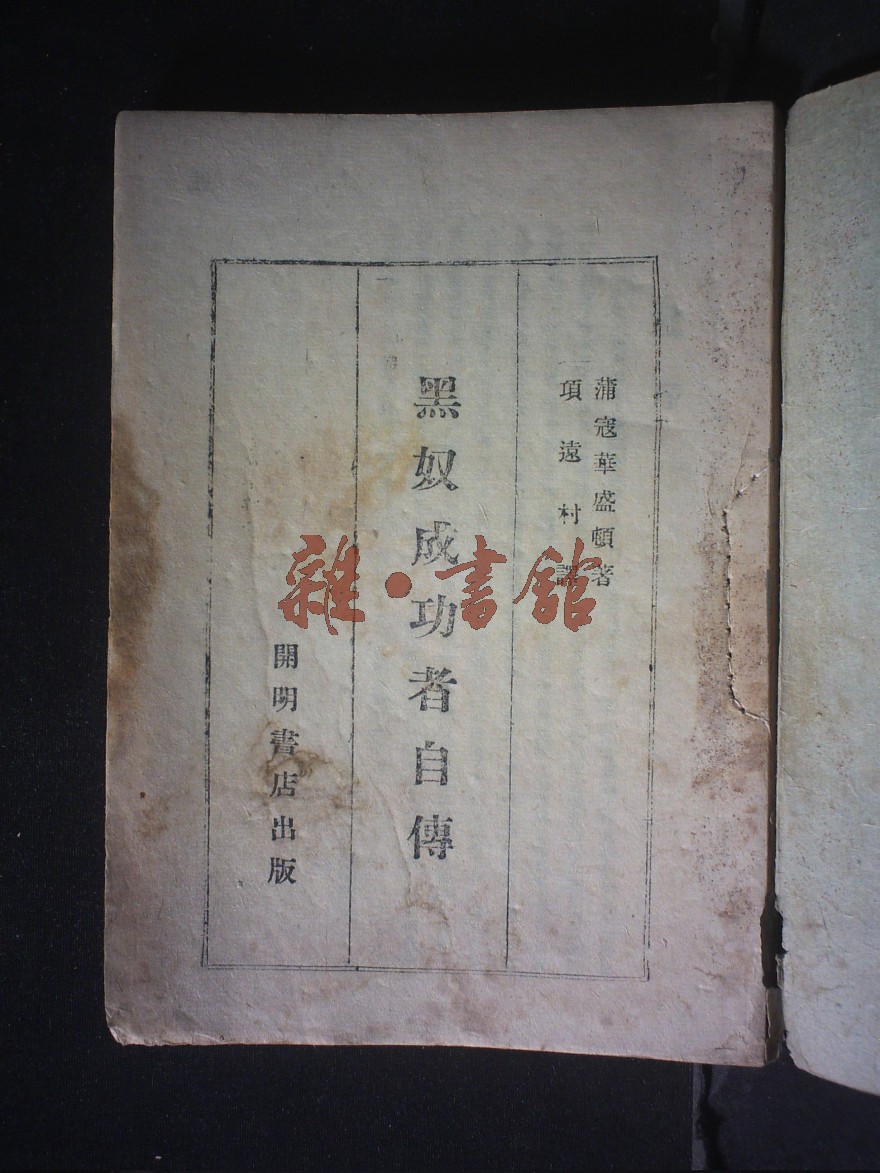 蒲寇華盛頓著
項遠村譯
黑奴成功者自傳
開明書店出版
雜·書館